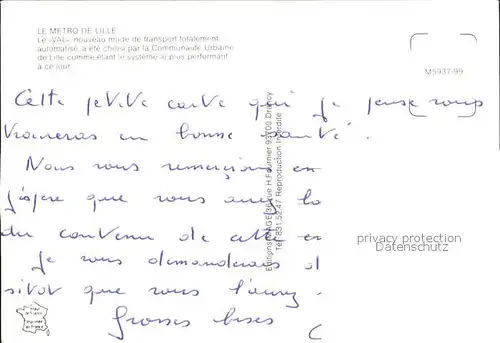 LE METRO DE LILLE
Le «VAL» nouveau mode de transport totalement
automatisé, a été choisi par la Communauté Urbaine
de Lille comme étant le système le plus performatif
à ce jour.
M5937-99
Cette petite carte qui je pense vous
trouveras en bonne santé.
Nous vous remercions en
j'espère que vous avez
du contenu de cette
Je vous demanderais d
sitôt que vous l'aurez.
Grosses bises
Editions IMAGE 36 rue H. Fournier 93700 Drancy
Tél. 831.52.47 Reproduction Interdite
privacy protection
Datenschutz